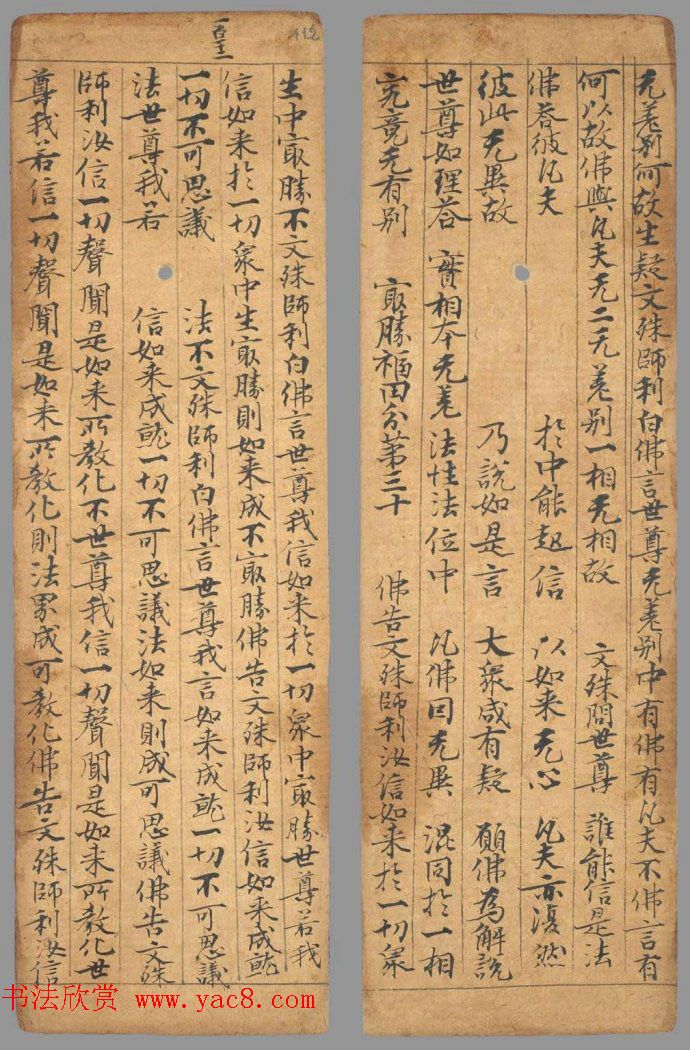 无差别何故生疑文殊師利白佛言世尊无差别中有佛有凡夫不佛言有
何以故佛與凡夫无二无差别一相无相故 文殊問世尊 誰能信是法
佛荅彼凡夫 於中能起信 以如来无心 凡夫亦復然
彼此无異故 乃說如是言 大衆咸有疑 願佛為解說
世尊如理荅 實相本无差 法性法位中 凡佛曰无異 混同於一相
究竟无有别 㝡勝福田分第三十 佛告文殊師利汝信如来於一切衆
生中㝡勝不文殊師利白佛言世尊我信如来於一切衆中㝡勝世尊若我
信如来於一切衆中生㝡勝則如来成不㝡勝佛告文殊師利汝信如来成就
一切不可思議 法不文殊師利白佛言世尊我言如来成就一切不可思議
法世尊我若 信如来成就一切不可思議法如来則成可思議佛告文殊
師利汝信一切聲聞是如来所教化不世尊我信一切聲聞是如来所教化世
尊我若信一切聲聞是如来所教化則法界成可教化佛告文殊師利汝信
112
书法欣赏 www.yac8.com